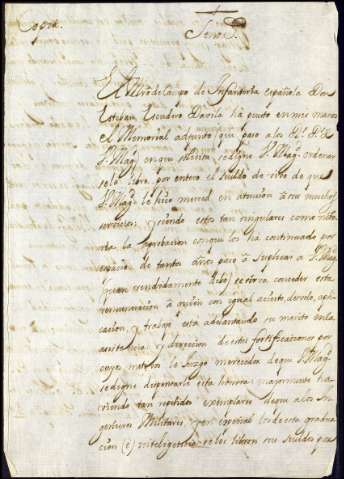 Copia.
Señor.
El Mro de Campo de Infanteria española Don
Esteban Escudero Davila ha puesto en mis manos
el Memorial adjunto que paso a las Rs. de
V. Magd. en que solicita se digne V. Magd. ordenar
se le libre por entero el sueldo de de que
V. Magd. le hizo merced en atencion a sus muchos
servicios; y siendo estos tan singulares como
la aprobacion con que los ha continuado por
espacio de tanta paso a suplicar a V. Magd.
rendidamente se sirva conceder esta
remuneracion a quien con igual acierto, desvelo, apli
cacion, y trabajo esta adelantando su merito en la
asistencia y direccion de estas fortificaciones por
cuyos motivos le juzgo merecedor de que V. Magd.
se digne dispensarle esta honrra: mayormente ha
viendo tan repetidos exemplares de que a los In
genieros Militares y en especial los de esta gradua
cion (e) inteligencia se les libren sus sueldos por